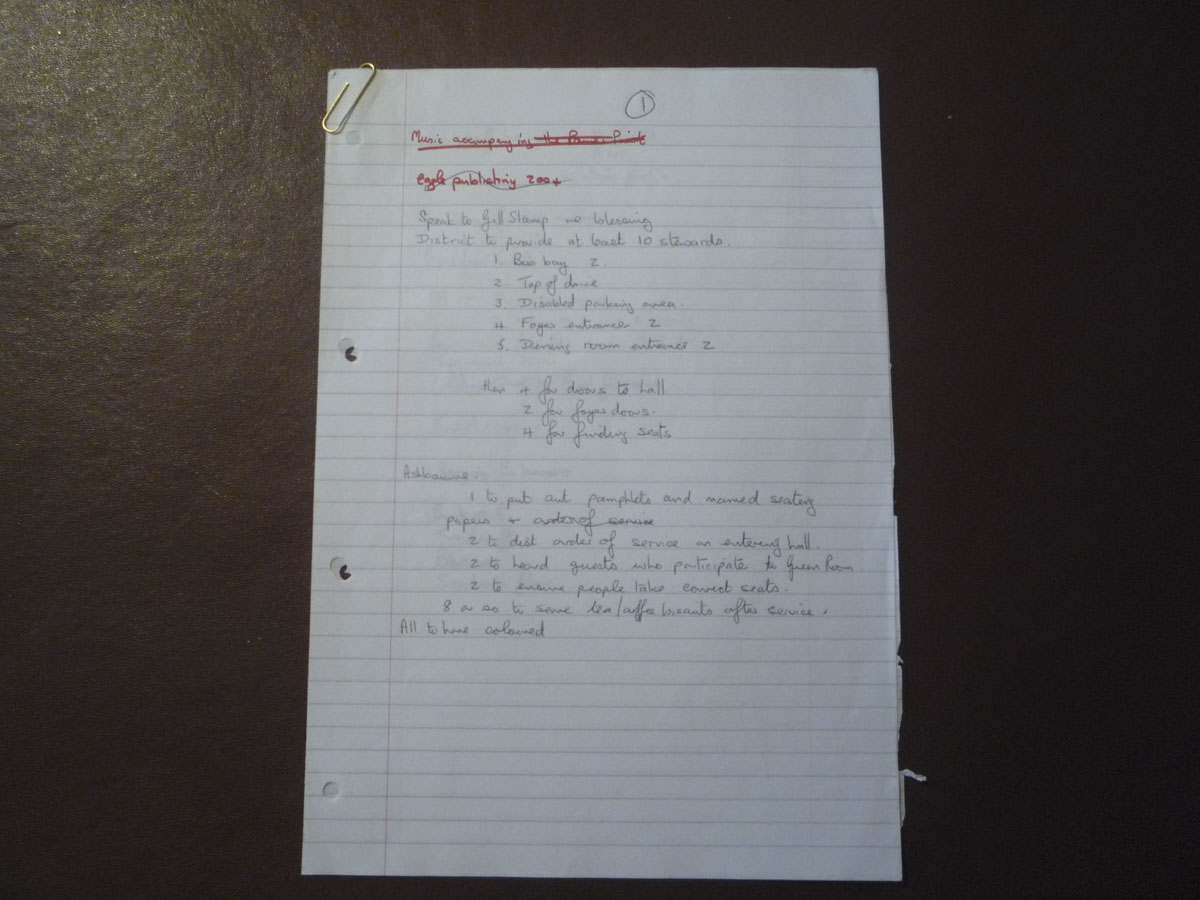 1
Music accompanying the Power Point
Eagle publishing 200+
Speak to Gill Stamp re blessing
District to provide at least 10 stewards.
1. Bus bay 2.
2. Top of drive
3. Disabled parking area.
4. Foyer entrance 2
5. Dining room entrance 2
then 4 for doors to hall
2 for foyer doors.
4 for finding seats
Ashbourne.
1 to put out pamphlets and named seating
papers + order of service
2 to dist order of service on entering hall.
2 to heard guests who participate to Green Room.
2 to ensure people take correct seats.
8 or so to serve tea/coffee biscuits after service.
All to have coloured